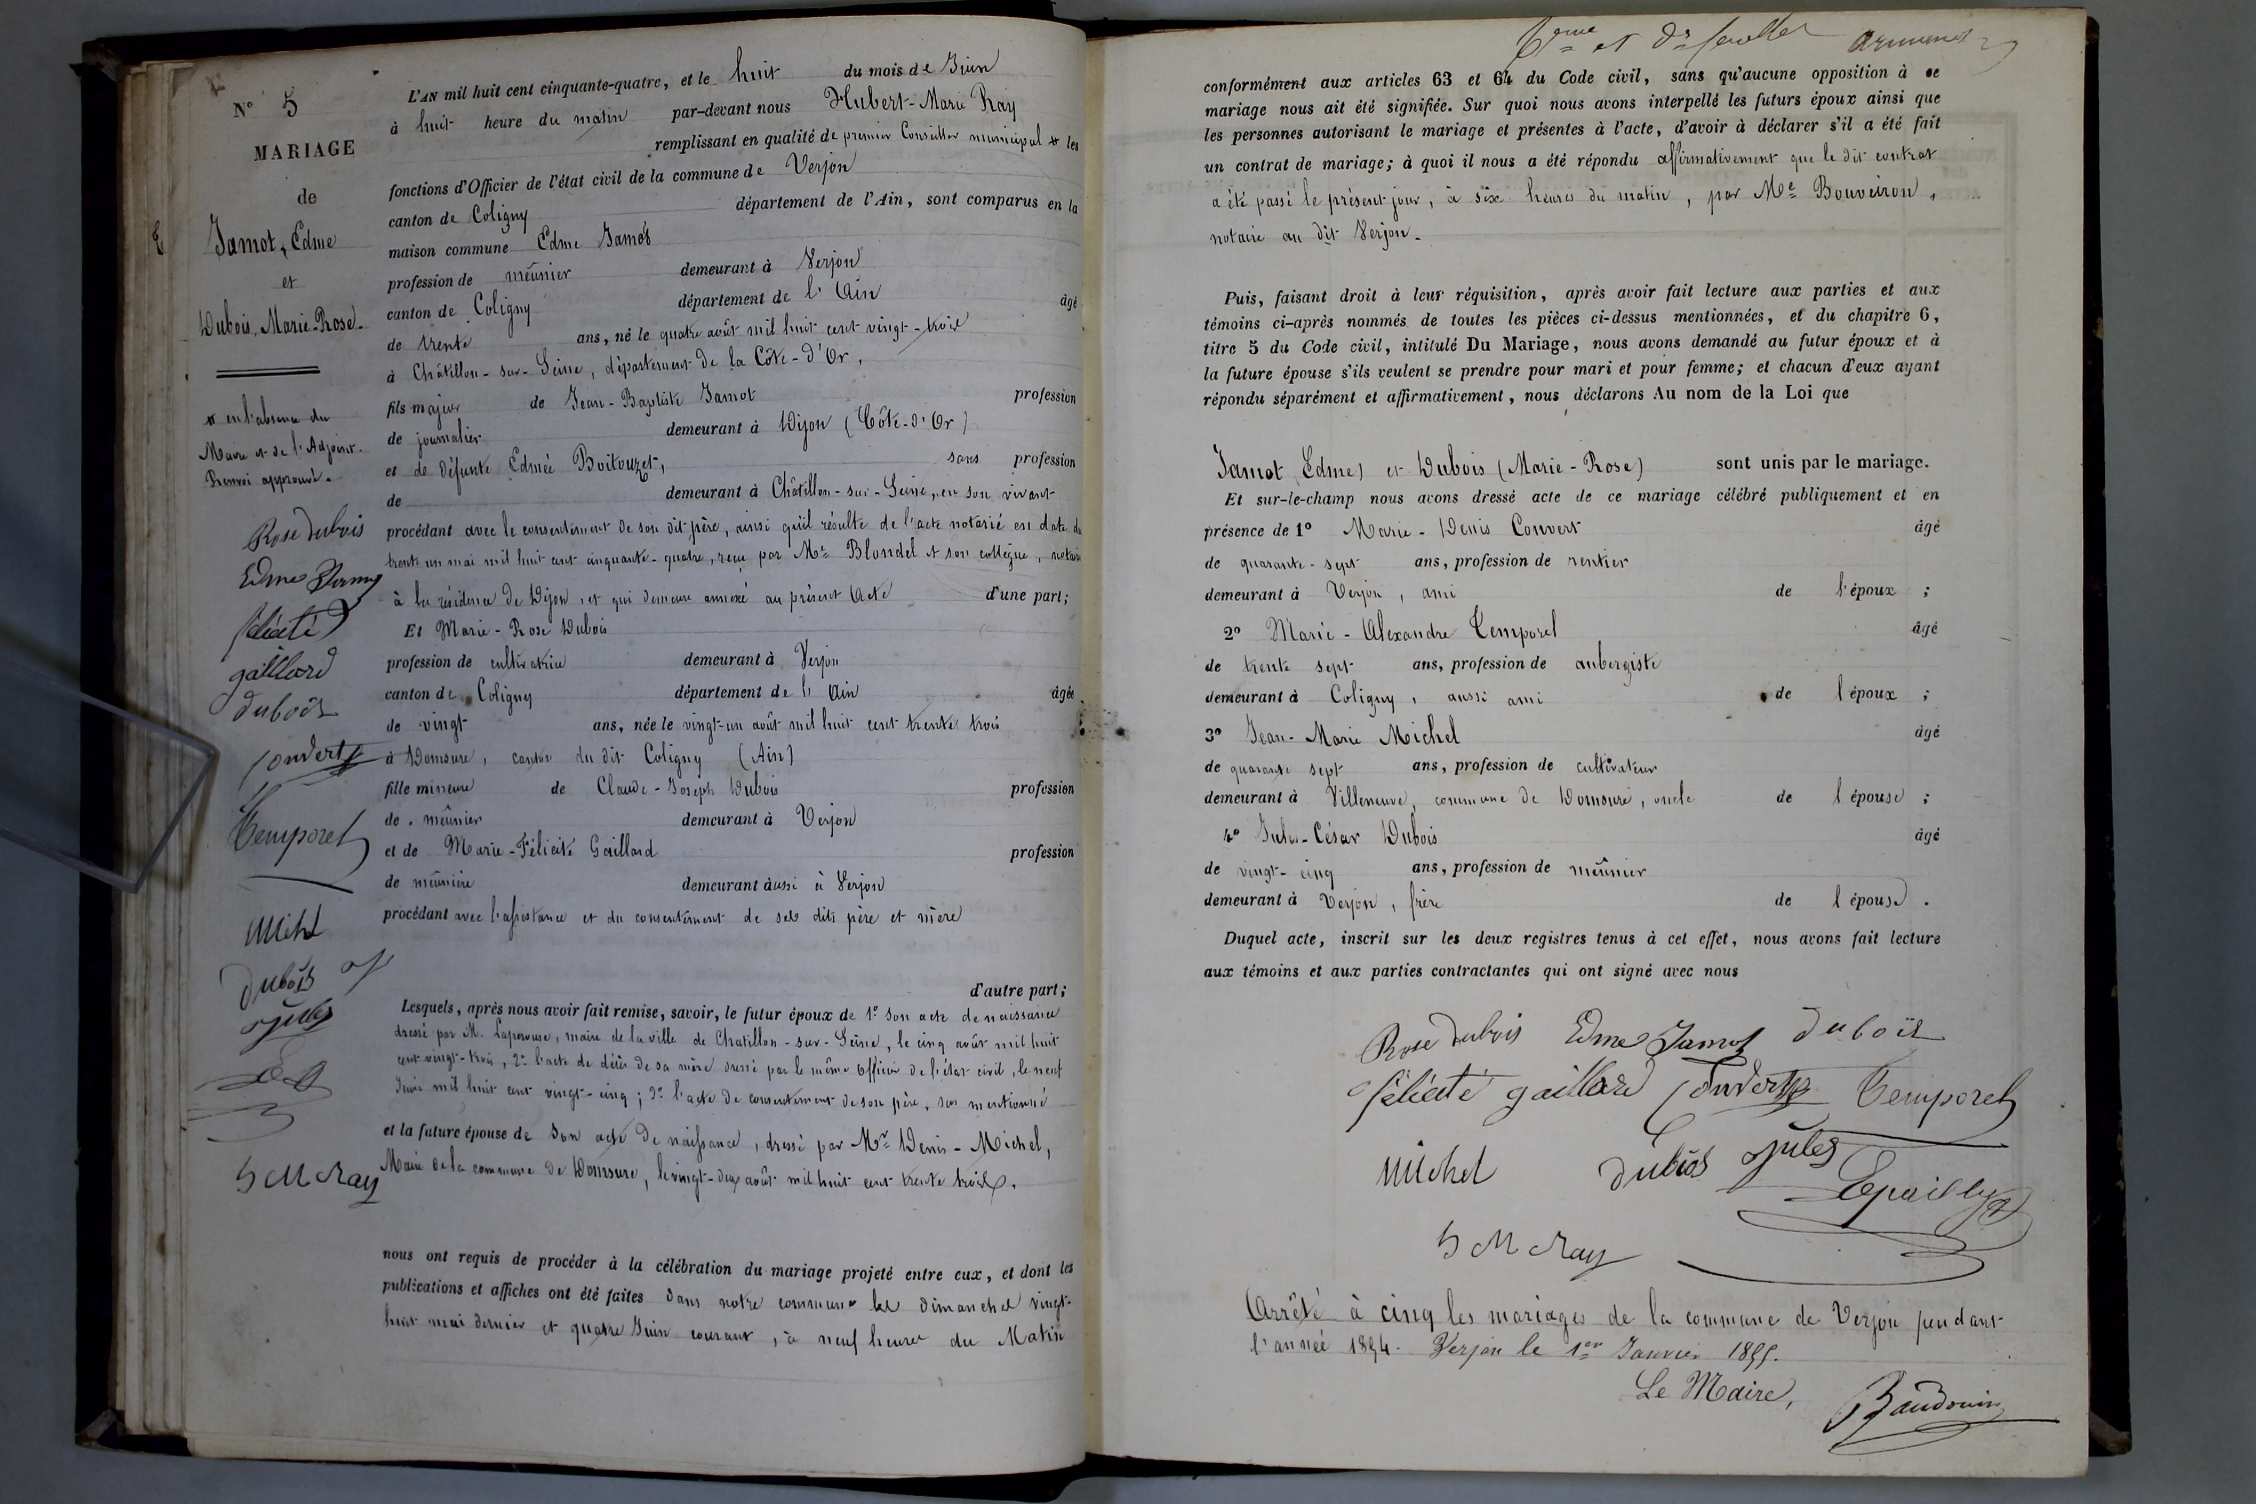 N° 5
MARIAGE
de
Jamot, Edme
et
Dubois, Marie-Rose.
en l'absence du
Maire et de l'Adjoint.
Renvoi approuvé.
Rose dubois
Edme Jamot
félicité
gaillard
dubois
Convert
Temporel
Michel
dubois
jules
h M Ray
L'AN mil huit cent cinquante-quatre, et le huit du mois de Juin
à huit heure du matin par-devant nous Hubert-Marie Ray
remplissant en qualité de premier Conseiller municipal les
fonctions d'Officier de l'état civil de la commune de Verjon
canton de Coligny département de l'Ain, sont comparus en la
maison commune Edme Jamot
profession de meûnier demeurant à Verjon
canton de Coligny département de l'Ain âgé
de trente ans, né le quatre août mil huit cent vingt-trois
à Châtillon-sur-Seine, département de la Côte-d'Or,
fils majeur de Jean-Baptiste Jamot profession
de journalier demeurant à Dijon (Côte-d'Or)
et de défunte Edmée Boitouzet, sans profession
de demeurant à Châtillon-sur-Seine, en son vivant
procédant avec le consentement de son dit père, ainsi qu'il résulte de l'acte notarié en date du
trente un mai mil huit cent cinquante-quatre, reçu par Me Blondel et son collègue, notaires
à la résidence de Dijon, et qui demeure annexé au présent Acte d'une part;
Et Marie-Rose Dubois
profession de cultivatrice demeurant à Verjon
canton de Coligny département de l'Ain âgée
de vingt ans, née le vingt-un août mil huit cent trente trois
à Domsure, canton du dit Coligny (Ain)
fille mineure de Claude-Joseph Dubois profession
de meûnier demeurant à Verjon
et de Marie-Félicité Gaillard profession
de meûnière demeurant aussi à Verjon
procédant avec l'assistance et du consentement de ses dits père et mère
d'autre part;
Lesquels, après nous avoir fait remise, savoir, le futur époux de 1° son acte de naissance
dressé par M. Laperouse, maire de la ville de Chatillon-sur-Seine, le cinq août mil huit
cent vingt-trois, 2° l'acte de décès de sa mère dressé par le même Officier de l'état civil, le neuf
Juin mil huit cent vingt-cinq; 3° l'acte de consentement de son père, sus mentionné
et la future épouse de son acte de naissance, dressé par Mr Denis-Michel,
Maire de la commune de Domsure, le vingt-deux août mil huit cent trente trois.
nous ont requis de procéder à la célébration du mariage projeté entre eux, et dont les
publications et affiches ont été faites dans notre commune les dimanches vingt-
huit mai dernier et quatre Juin courant, à neuf heures du Matin
6eme et dr feuillet
conformément aux articles 63 et 64 du Code civil, sans qu'aucune opposition à ce
mariage nous ait été signifiée. Sur quoi nous avons interpellé les futurs époux ainsi que
les personnes autorisant le mariage et présentes à l'acte, d'avoir à déclarer s'il a été fait
un contrat de mariage; à quoi il nous a été répondu affirmativement que le dit contrat
a été passé le présent jour, à six heures du matin, par Me Bouveiron,
notaire au dit Verjon.
Puis, faisant droit à leur réquisition, après avoir fait lecture aux parties et aux
témoins ci-après nommés de toutes les pièces ci-dessus mentionnées, et du chapitre 6,
titre 5 du Code civil, intitulé Du Mariage, nous avons demandé au futur époux et à
la future épouse s'ils veulent se prendre pour mari et pour femme; et chacun d'eux ayant
répondu séparément et affirmativement, nous déclarons Au nom de la Loi que
Jamot (Edme) et Dubois (Marie-Rose) sont unis par le mariage.
Et sur-le-champ nous avons dressé acte de ce mariage célébré publiquement et en
présence de 1° Marie-Denis Convert âgé
de quarante-sept ans, profession de rentier
demeurant à Verjon, ami de l'époux ;
2° Marie-Alexandre Temporel âgé
de trente sept ans, profession de aubergiste
demeurant à Coligny, aussi ami de l'époux ;
3° Jean-Marie Michel âgé
de quarante sept ans, profession de cultivateur
demeurant à Villeneuve, commune de Domsure, oncle de l'épouse ;
4° Jules-César Dubois âgé
de vingt-cinq ans, profession de meûnier
demeurant à Verjon, frère de l'épouse .
Duquel acte, inscrit sur les deux registres tenus à cet effet, nous avons fait lecture
aux témoins et aux parties contractantes qui ont signé avec nous
Rose dubois Edme Jamot dubois
félicité gaillard Convert Temporel
Michel dubois jules
Epailly
h M Ray
Arrêté à cinq les mariages de la commune de Verjon pendant
l'année 1854. Verjon le 1er Janvier 1855.
Le Maire,
Baudouin